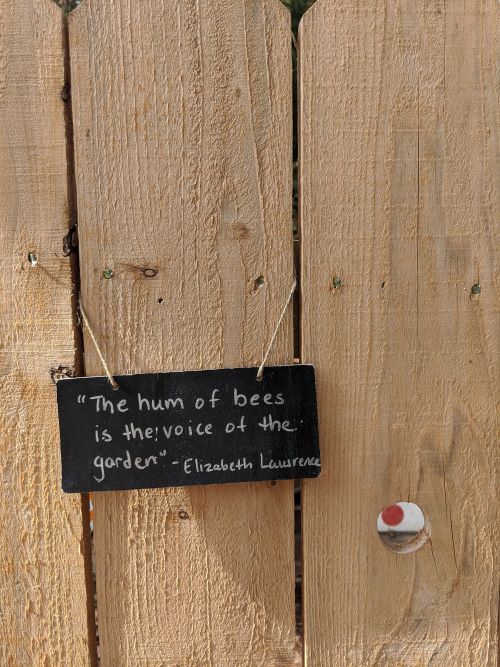 "The hum of bees
is the voice of the
garden" - Elizabeth Lawrence